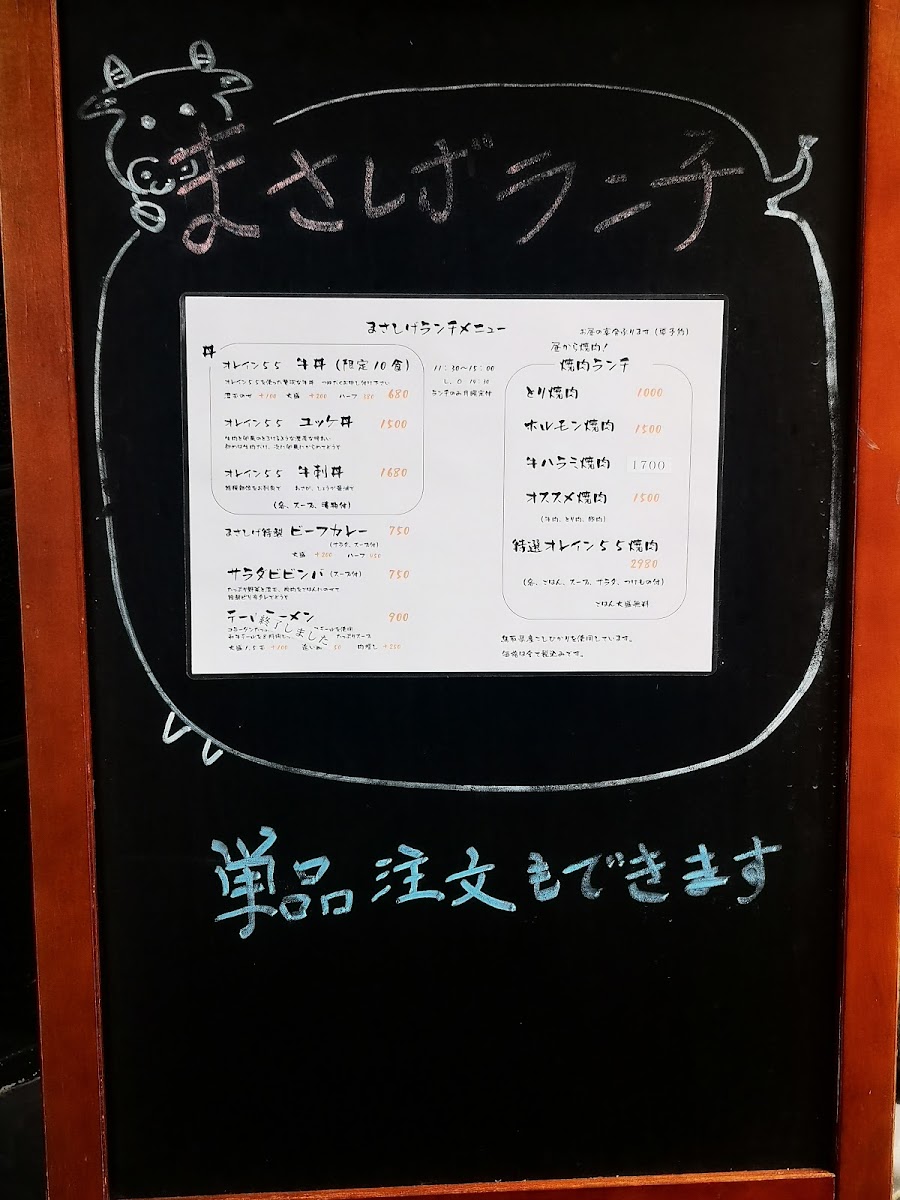 まさしげランチ
まさしげランチメニュー
お昼の宴会承ります（要予約）
丼
オレイン55 牛丼（限定10食）
温玉のせ +100 大盛 +200 ハーフ 380 680
オレイン55 ユッケ丼 1500
オレイン55 牛刺丼 1680
（冬、スープ、漬物付）
まさしげ特製 ビーフカレー 750
（サラダ、スープ付）
大盛 +200 ハーフ 450
サラダビビンバ（スープ付） 750
ラーメン 900
終了しました
11:30～15:00
L.O 14:30
昼から焼肉！
焼肉ランチ
とり焼肉 1000
ホルモン焼肉 1500
牛ハラミ焼肉 1700
オススメ焼肉 1500
（牛肉、とり肉、豚肉）
特選オレイン55焼肉
2980
（冬、ごはん、スープ、サラダ、つけもの付）
ごはん大盛無料
鳥取県産こしひかりを使用しています。
価格は全て税込みです。
単品注文もできます